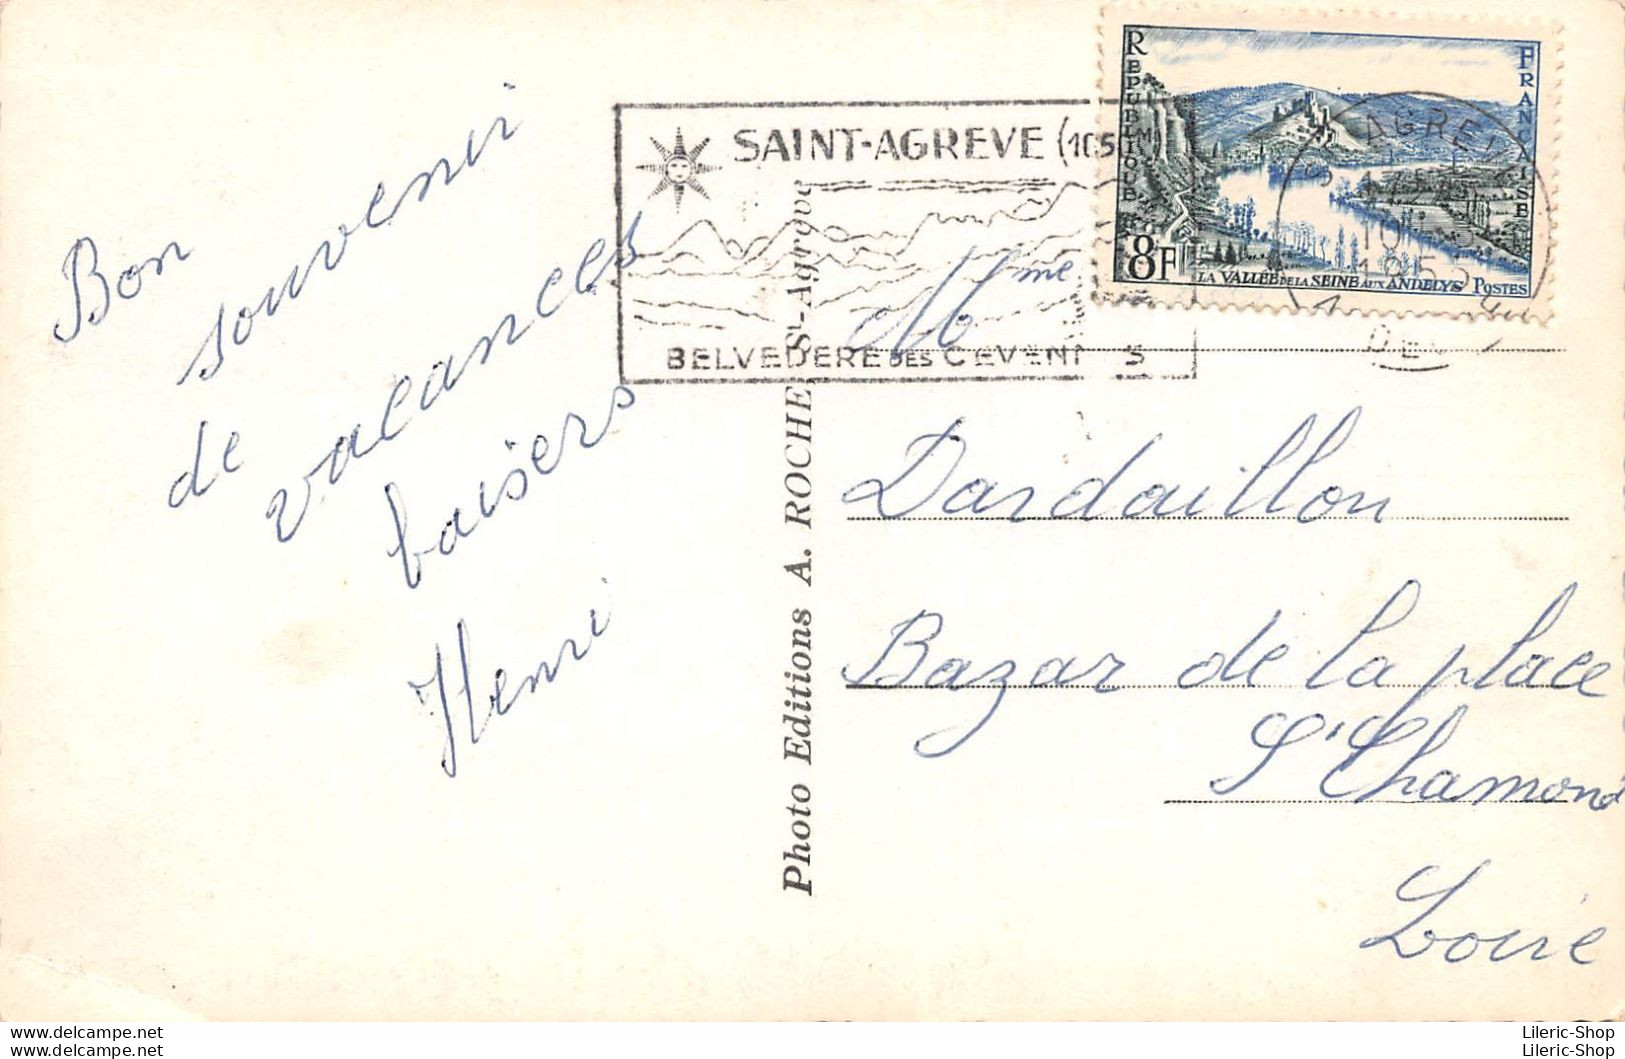 Bon
souvenir
de
vacances
baisers
Henri
SAINT-AGREVE (1050M)
BELVEDERE DES CEVENNES
Photo Editions A. ROCHE, St-Agrève
REPUBLIQUE
FRANÇAISE
8F
LA VALLÉE DE LA SEINE AUX ANDELYS POSTES
ST AGREVE
Mme
Dardaillon
Bazar de la place
St Chamond
Loire
lileric-delcampe.net
lileric-delcampe.net
Lileric-Shop
Lileric-Shop